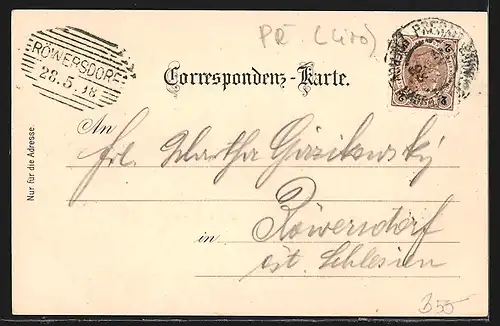 PR (Lito)
RÖWERSDORF
28.5.98
PRERAU
Correspondenz-Karte.
Nur für die Adresse
An
Frl. Martha
in Röwersdorf
öst. Schlesien
B55